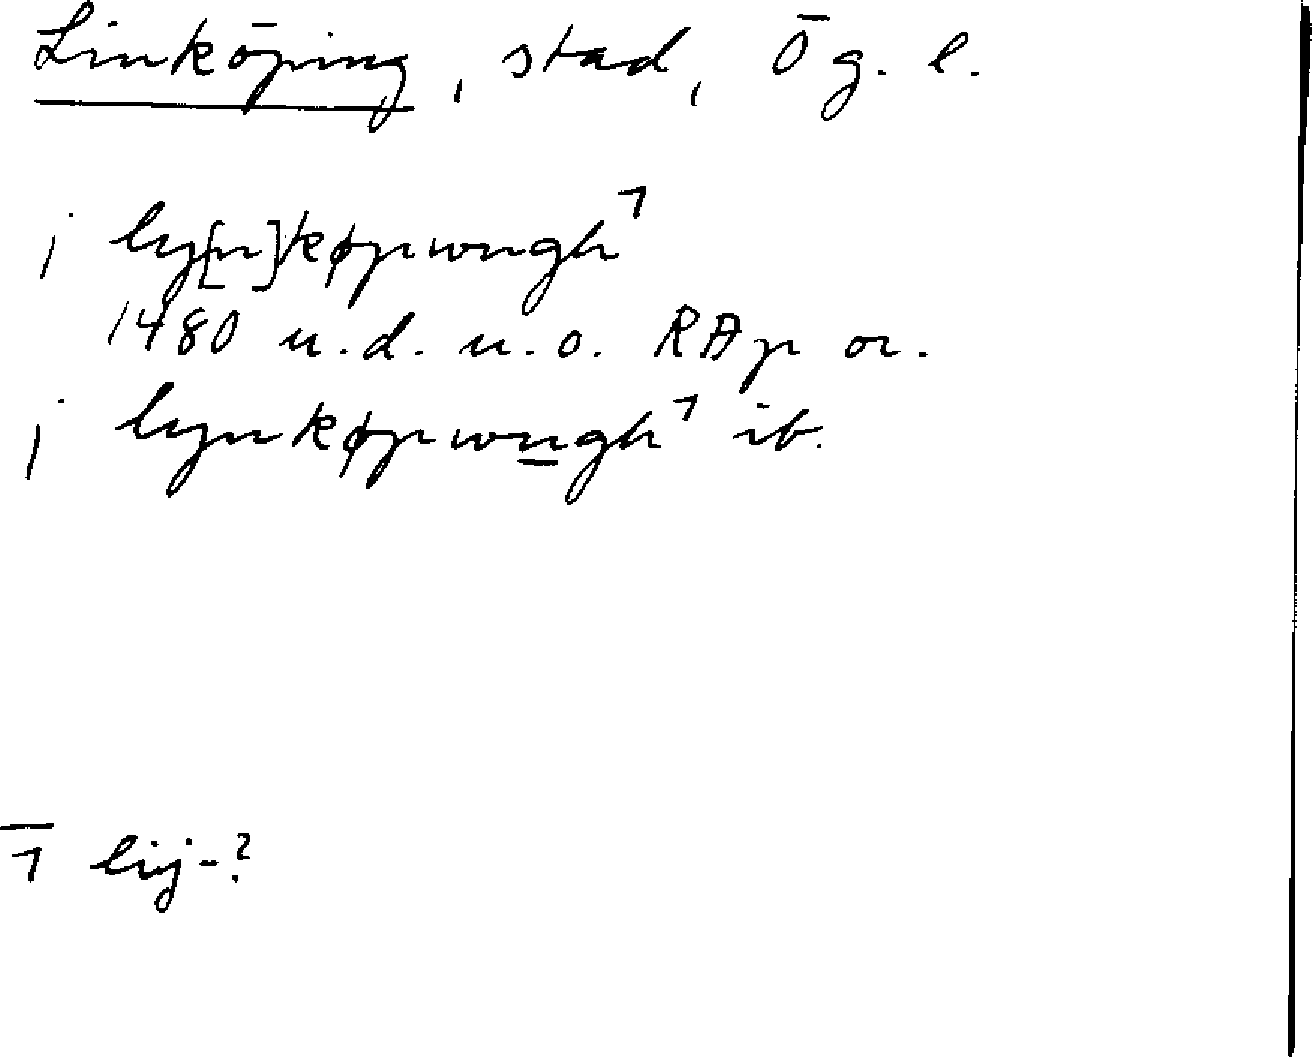 Linköping, stad, Ög. l.
j ly[n]køpwngh¹
1480 u.d. u.o. RAp or.
j lynkøpwngh¹ ib.
1 lij-?